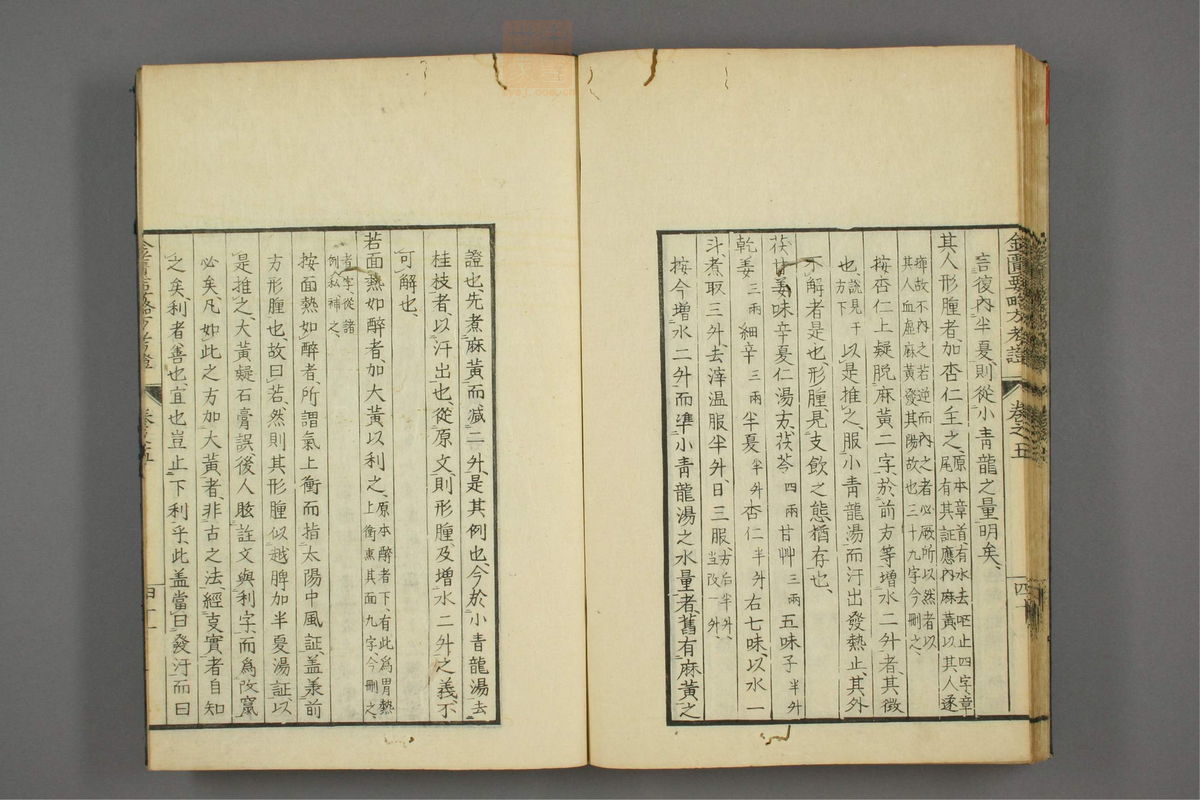 金匱要略方考證 卷之五 四十
言復內半夏、則從小青龍之量明矣、
其人形腫者、加杏仁主之、原本章首有水去嘔止四字、章
尾有其証應內麻黃以其人遂
痺故不內之若逆而內之者必厥所以然者以
其人血虛麻黃發其陽故也三十九字今刪之、
按杏仁上疑脫麻黃二字、於前方等增水二升者、其徵
也、說見于
方下 以是推之、服小青龍湯而汗出發熱止、其外
不解者是也、形腫、是支飲之態猶存也、
茯甘姜味辛夏仁湯方、茯苓四兩甘艸三兩五味子半升
乾姜三兩細辛三兩半夏半升杏仁半升右七味、以水一
斗、煮取三升、去滓溫服半升、日三服、方后半升、
當改一升、
按今增水二升而準小青龍湯之水量者、舊有麻黃之
證也、先煮麻黃而减二升、是其例也、今於小青龍湯去
桂枝者、以汗出也、從原文、則形腫、及增水二升之義、不
可解也、
若面熱如醉者、加大黃以利之、原本醉者下、有此為胃熱
上衝熏其面九字、今刪之、
者字從諸
例私補之、
按面熱如醉者、所謂氣上衝而指太陽中風証盖兼前
方形腫也、故曰若、然則其形腫似越脾加半夏湯証以
是推之、大黃疑石膏誤、後人肢詮文與利字、而為改竄
必矣、凡如此之方加大黃者、非古之法、經叓實者自知
之矣、利者、善也、宜也豈止下利乎、此盖當曰發汗而曰
四十一